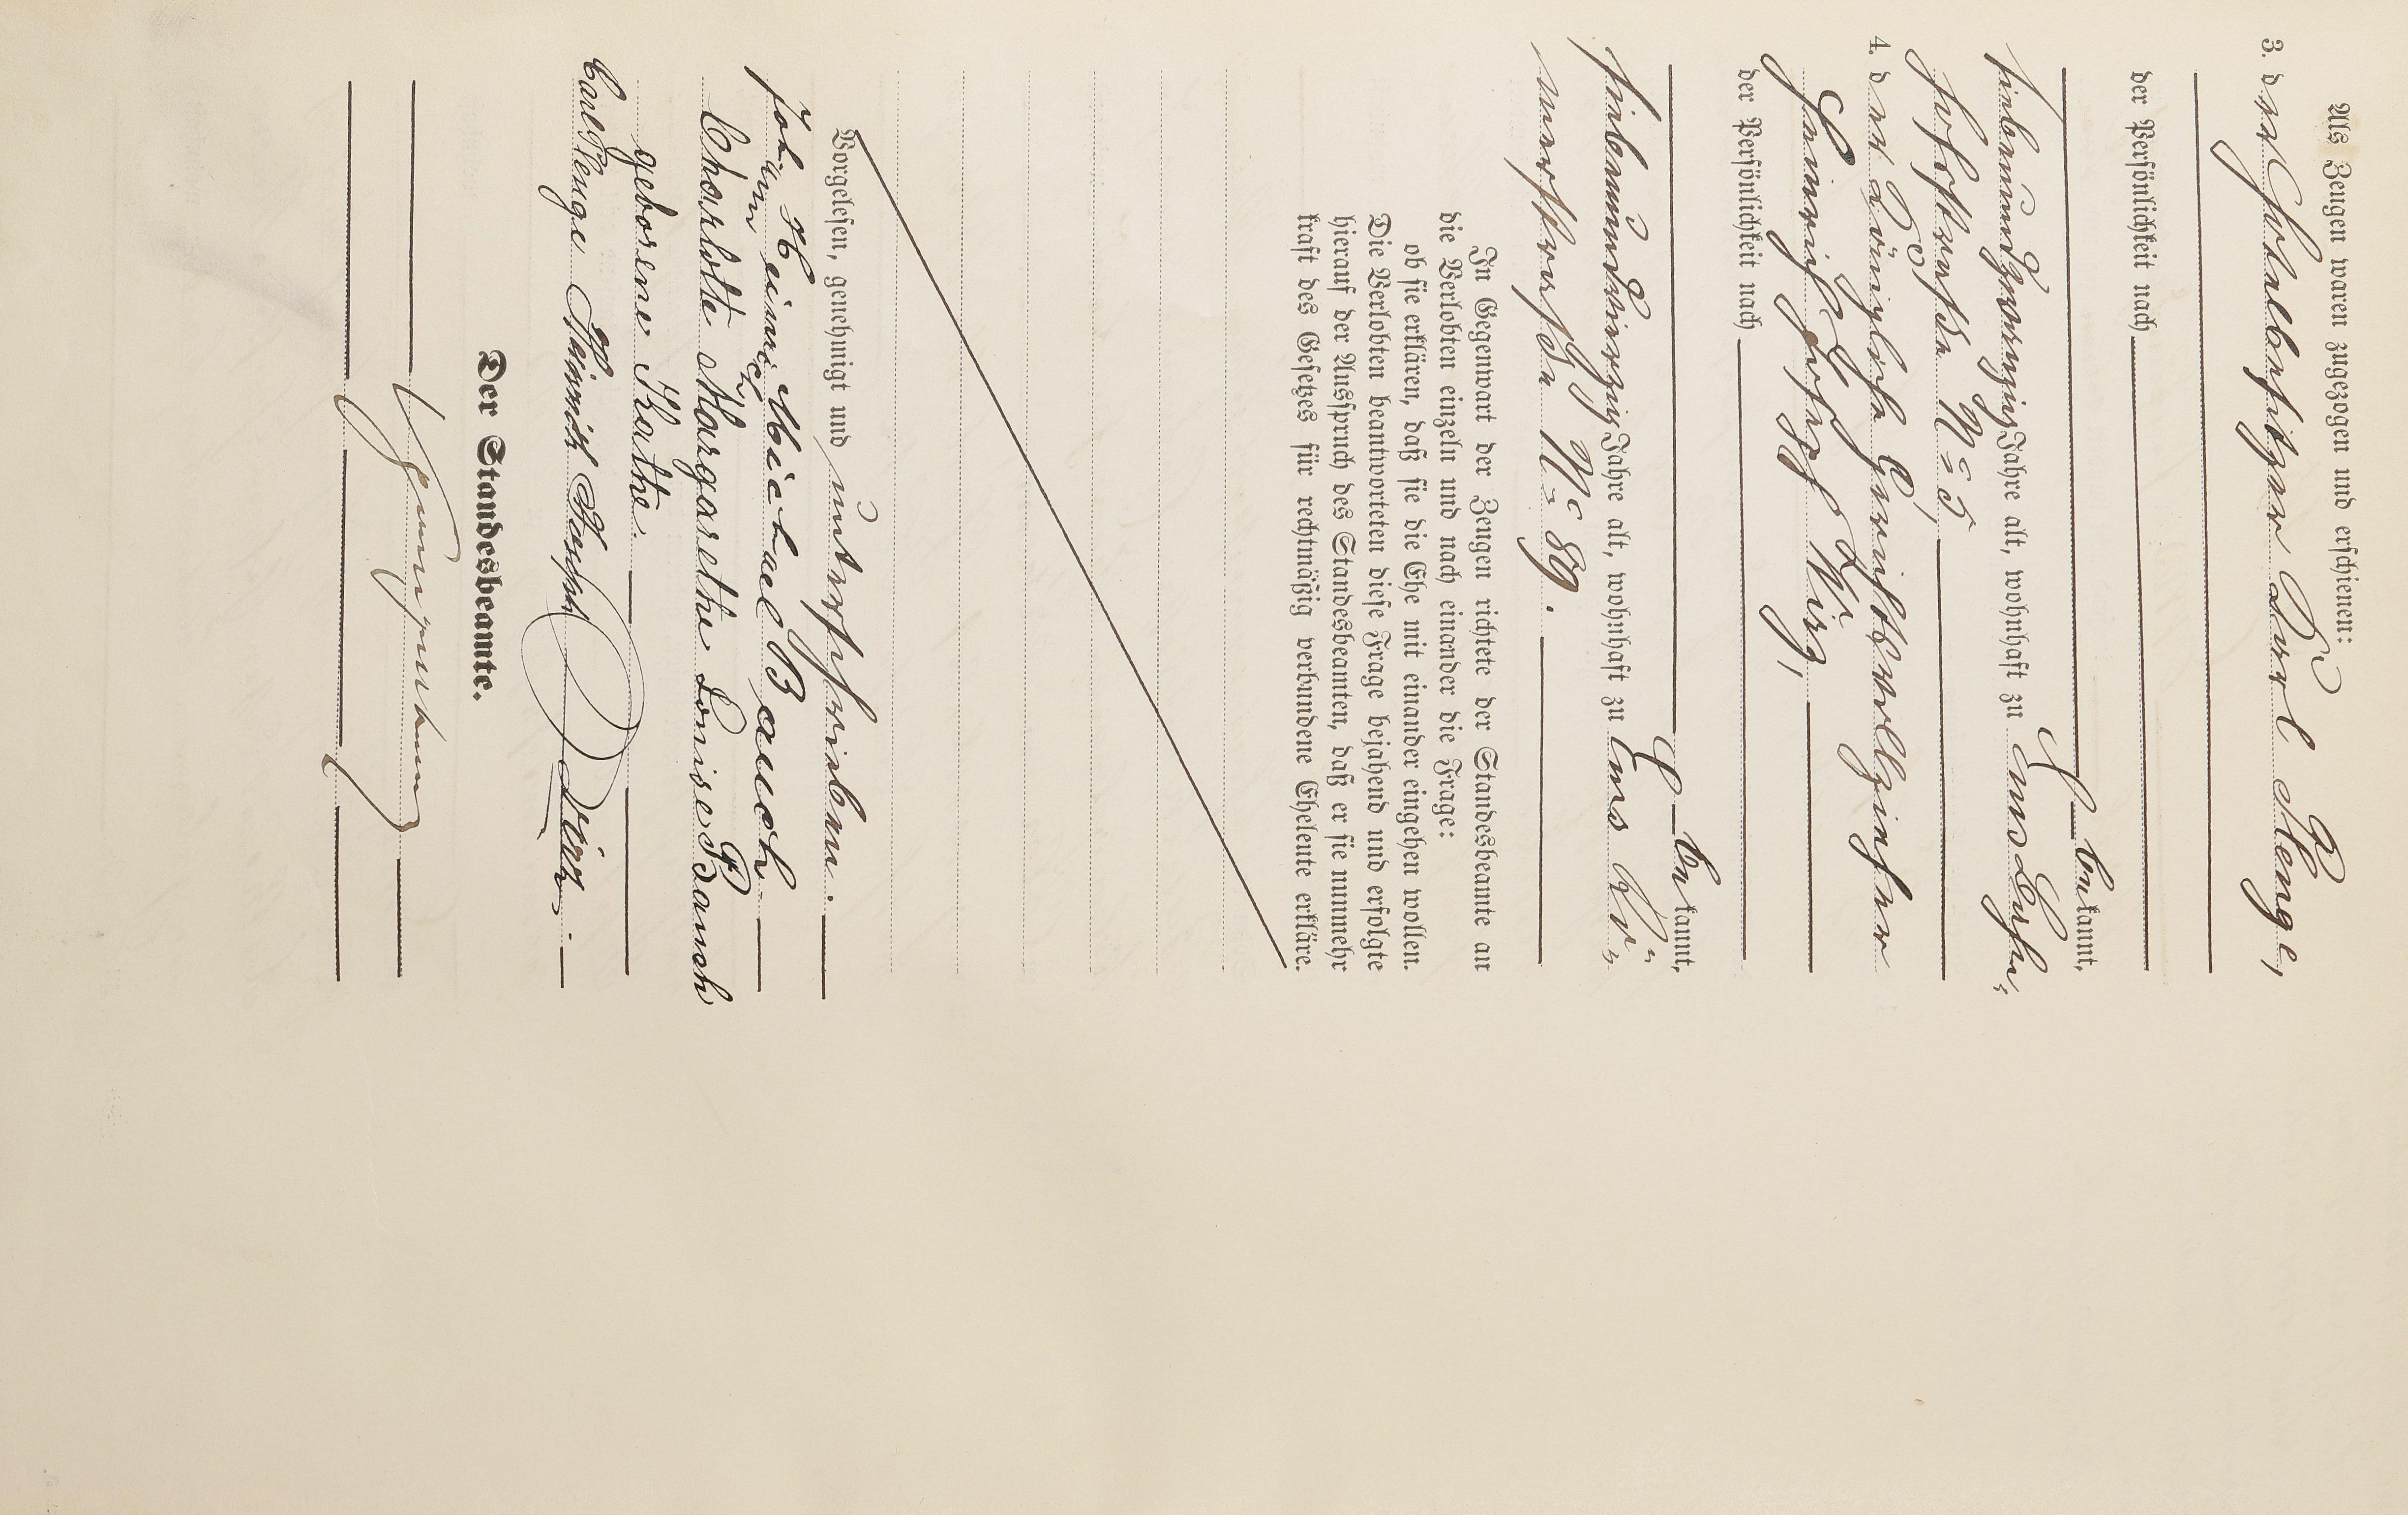 Als Zeugen waren zugezogen und erschienen:
3. der Hotelbesitzer Karl Plenge,
der Persönlichkeit nach
bekannt,
siebenundzwanzig Jahre alt, wohnhaft zu Ems
N: 5,
4. der Königliche Gerichtsvollzieher
Heinrich Joseph
der Persönlichkeit nach
bekannt,
siebenundvierzig Jahre alt, wohnhaft zu Ems Rö=
merstraße N: 89.
In Gegenwart der Zeugen richtete der Standesbeamte an
die Verlobten einzeln und nach einander die Frage:
ob sie erklären, daß sie die Ehe mit einander eingehen wollen.
Die Verlobten beantworteten diese Frage bejahend und erfolgte
hierauf der Ausspruch des Standesbeamten, daß er sie nunmehr
kraft des Gesetzes für rechtmäßig verbundene Eheleute erkläre.
Vorgelesen, genehmigt und unterschrieben.
Heinrich Michael Bauch
Charlotte Margarethe Louise Bauch
geborene
Carl Plenge Heinrich Joseph
Der Standesbeamte.